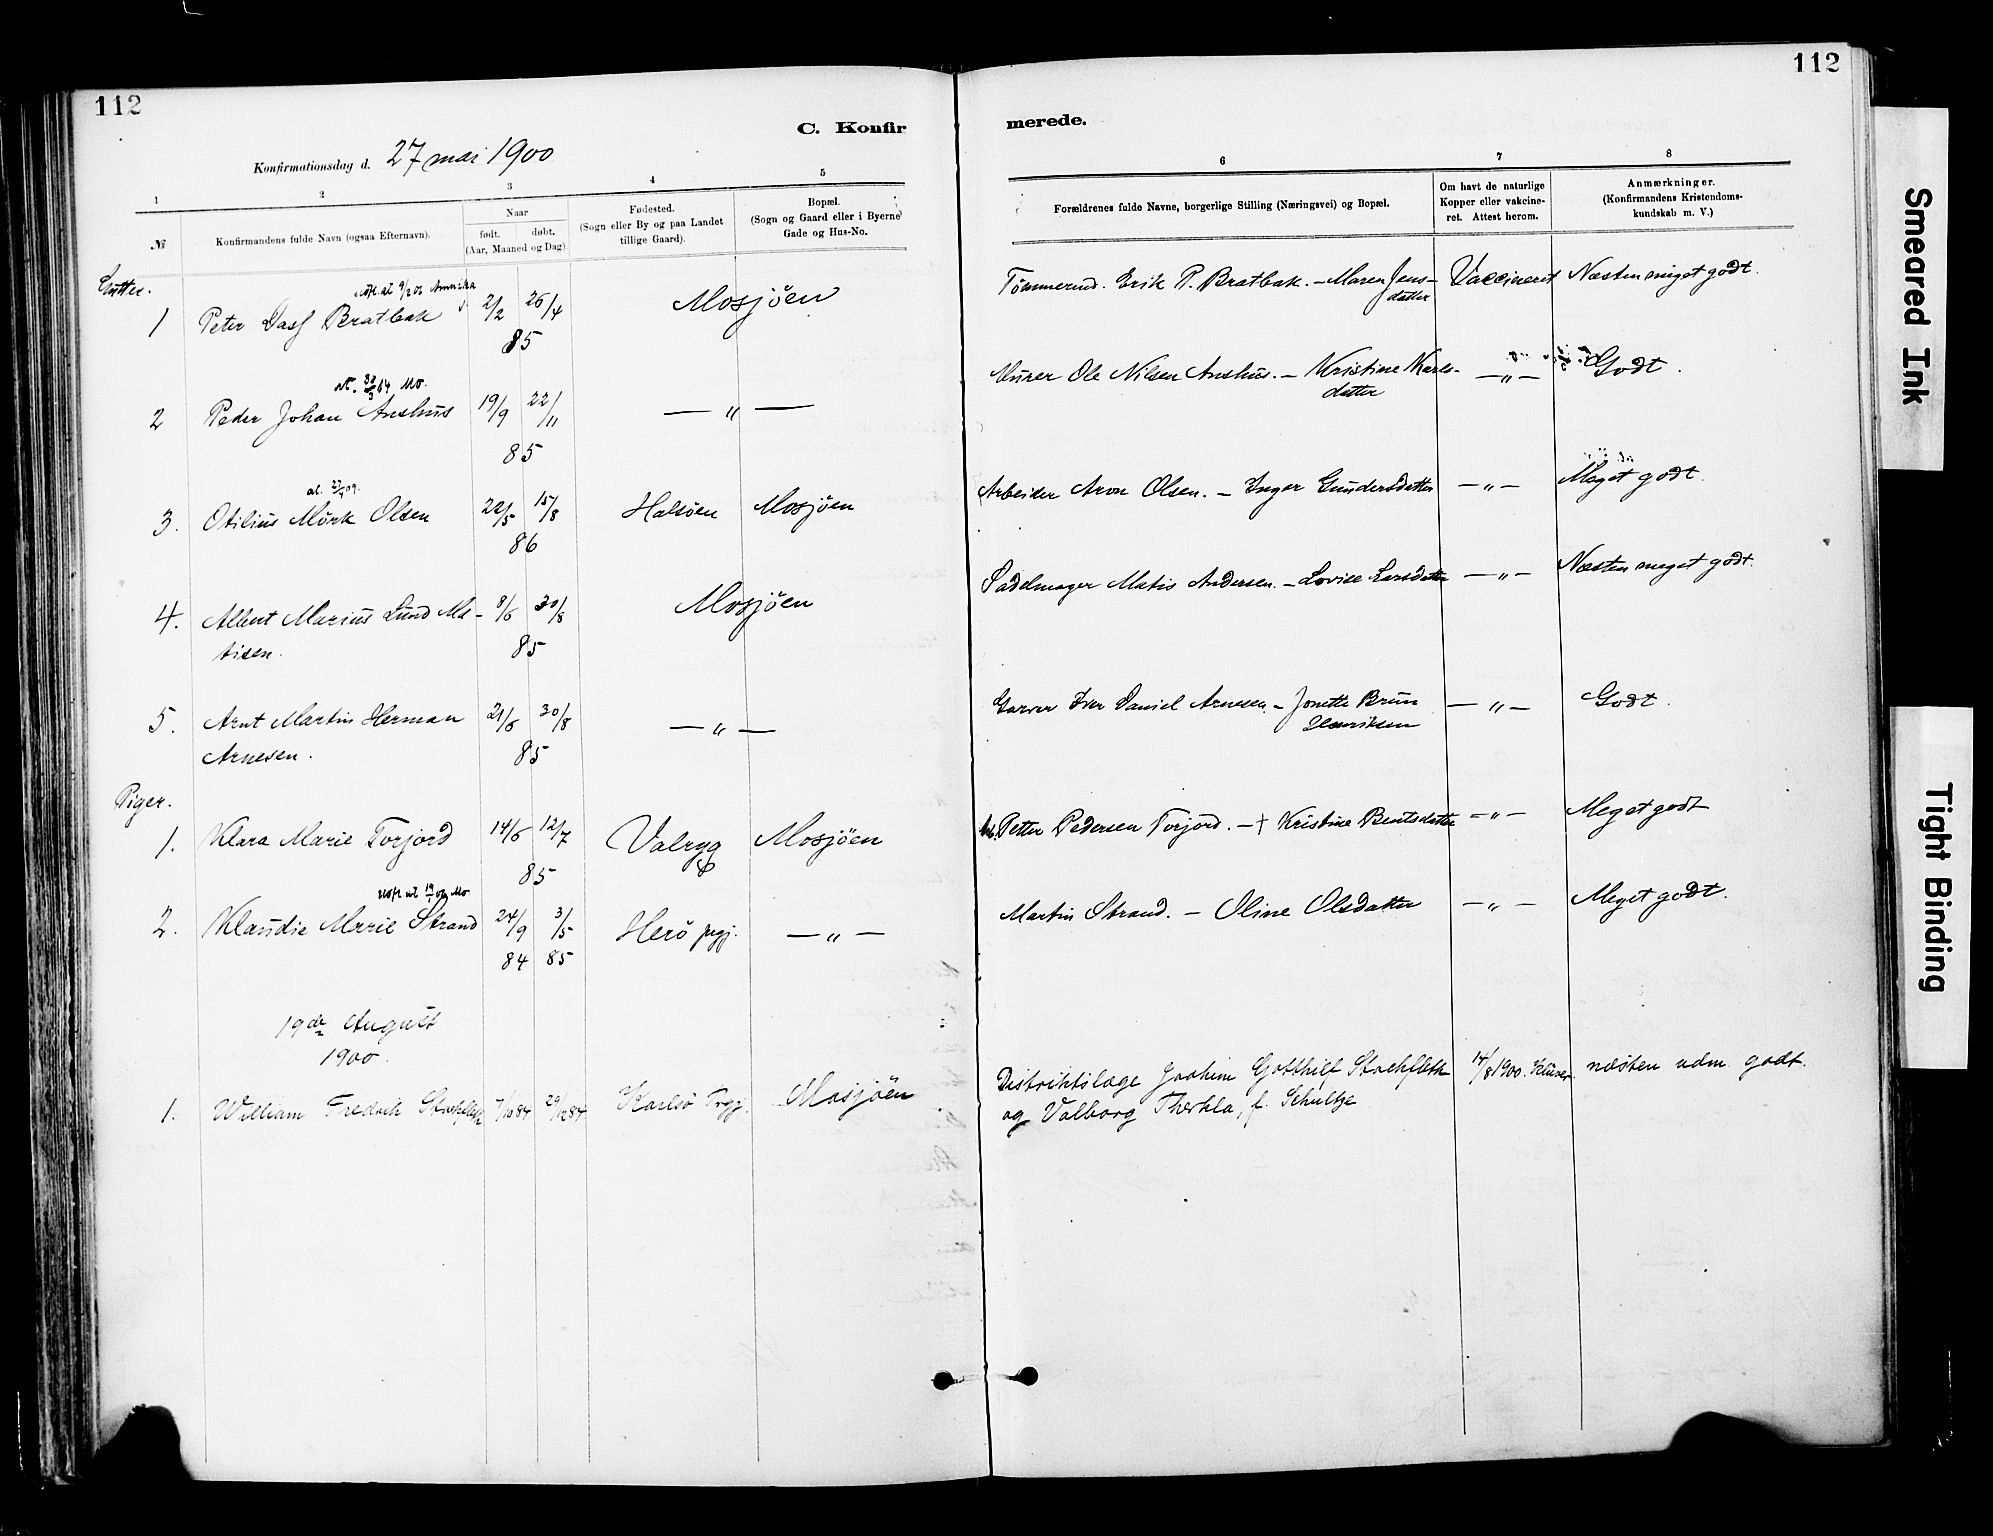 112
112
C. Konfir
merede.
Konfirmationsdag d. 27 mai 1900
1 2 3 4 5
6 7 8
№
Konfirmandens fulde Navn (ogsaa Efternavn).
Naar
født. døbt.
(Aar, Maaned og Dag)
Fødested.
(Sogn eller By og paa Landet
tillige Gaard).
Bopæl.
(Sogn og Gaard eller i Byerne
Gade og Hus-No.
Forældrenes fulde Navne, borgerlige Stilling (Næringsvei) og Bopæl.
Om havt de naturlige
Kopper eller vakcine-
ret. Attest herom.
Anmærkninger.
(Konfirmandens Kristendoms-
kundskab m. V.)
Gutter.
Amerika
1 Peter Dass Bratbak 2/2 26/4 Mosjöen Tömmermd. Erik P. Bratbak. - Maren Jens- Vaccineret Næsten meget godt.
85
datter
at. Mo.
2 Peder Johan Anshus 19/9 22/11 — „ — Murer Ole Nilsen Anshus. - Kristine Karls- — „ — Godt.
85
datter
at.
3. Otilius Mörk Olsen 22/5 15/8 Halsöen Mosjöen Arbeider Aron Olsen. - Inger Gundersdatter — „ — Meget godt.
86
4. Albert Marius Lund Ma- 8/6 30/8 Mosjöen Sadelmager Matis Andersen. - Lovise Larsdatter — „ — Næsten meget godt.
tisen. 85
5. Arnt Martin Herman 21/6 30/8 — „ — Garver Iver Daniel Arnesen. - Jonette Brun — „ — Godt.
Arnesen. 85
Henriksen
Piger.
1. Klara Marie Torjord 14/6 12/7 Valryg Mosjöen Petter Pedersen Torjord. - + Kristine Bentsdatter — „ — Meget godt
85
Mo
2. Klaudie Marie Strand 24/9 3/5 Herö prgj. — „ — Martin Strand. - Oline Olsdatter — „ — Meget godt.
84 85
19de August
1900.
1. William Fredrik Stockfleth 7/10 84 29/12 84 Karlsö Prgj. Mosjöen Distriktslæge Joakim Gotthilf Stockfleth 14/8 1900. Klüwer. næsten udm godt.
og Valborg Thekla, f. Schultze
Smeared Ink
Tight Binding